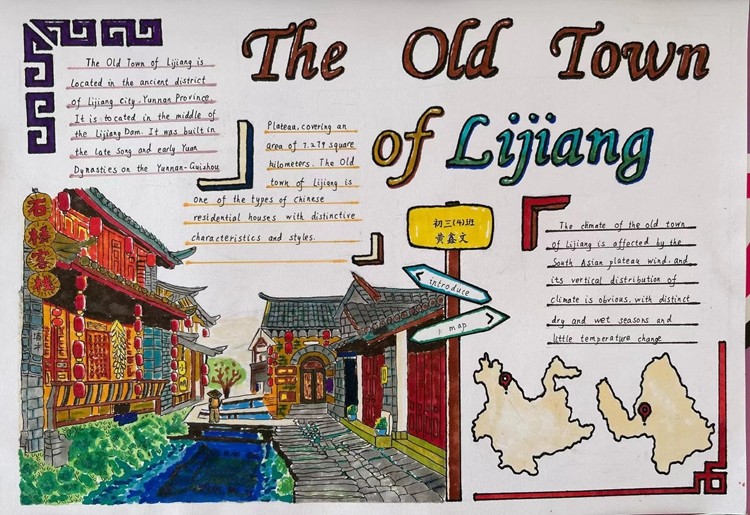 The Old Town
of Lijiang
The Old Town of Lijiang is
located in the ancient district
of Lijiang City, Yunnan Province.
It is located in the middle of
the Lijiang Dam. It was built in
the late Song and early Yuan
Dynasties on the Yunnan-Guizhou
Plateau, covering an
area of 7.279 square
kilometers. The Old
town of Lijiang is
one of the types of Chinese
residential houses with distinctive
characteristics and styles.
初三(4)班
黄鑫文
introduce
map
The climate of the old town
of Lijiang is affected by the
South Asian plateau wind, and
its vertical distribution of
climate is obvious, with distinct
dry and wet seasons and
little temperature change